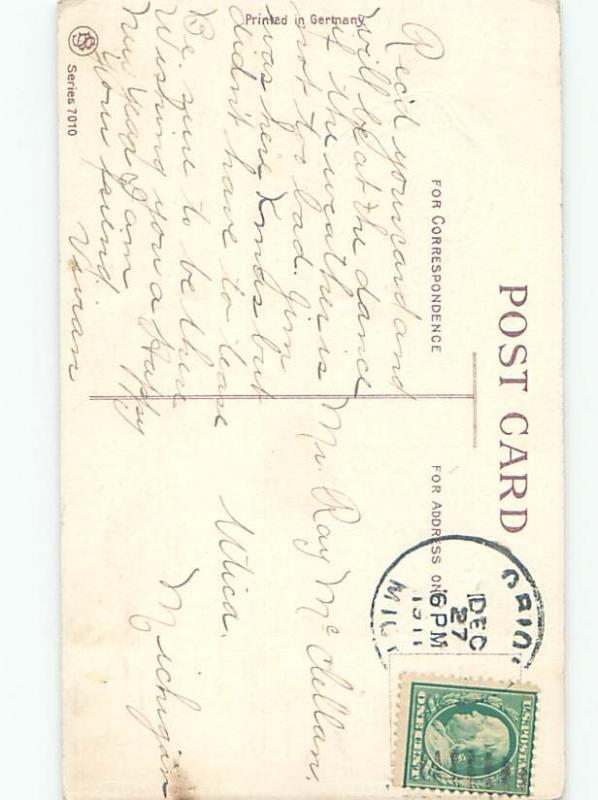 POST CARD
FOR CORRESPONDENCE
FOR ADDRESS ONLY
Rec'd your card and
will be at the dance
if the weather is
not too bad. Jim
was here Xmas but
didn't have to leave
Be sure to be there
Wishing you a Happy
New Year I am
Your friend
Vivian
Mr. Ray McClellan.
Utica.
Michigan
DEC
27
6 PM
1911
MICH
U.S. POSTAGE
ONE CENT
Printed in Germany
Series 7010